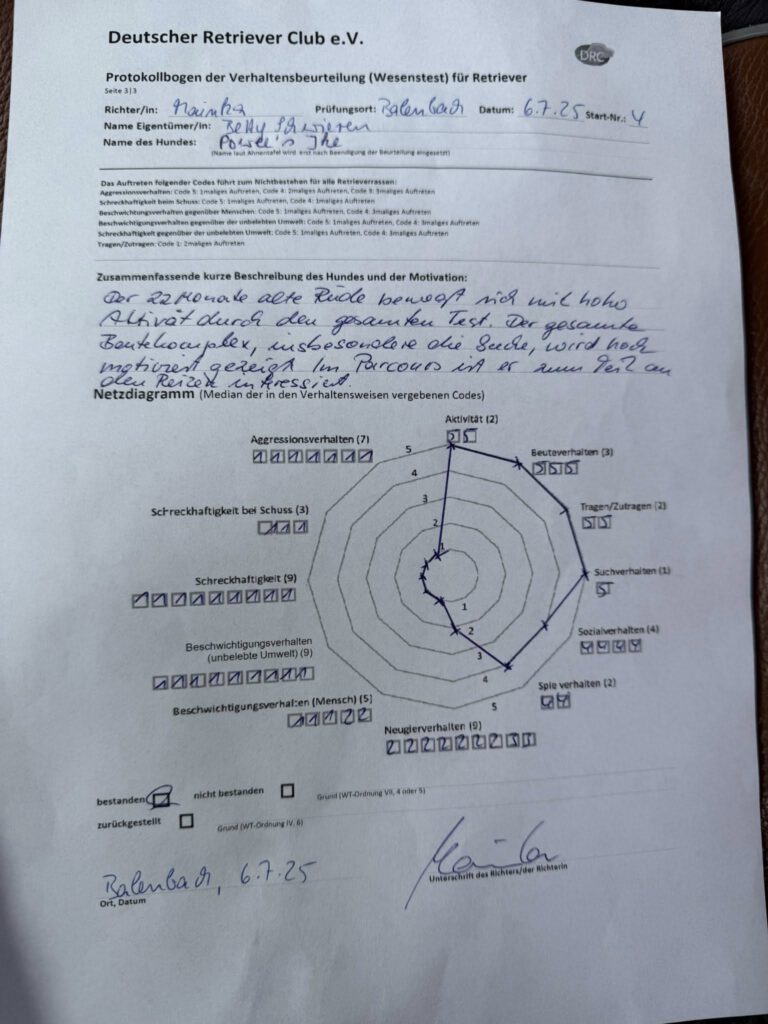 Deutscher Retriever Club e.V.
DRC
Protokollbogen der Verhaltensbeurteilung (Wesenstest) für Retriever
Seite 3|3
Richter/in: Mainka Prüfungsort: Balenbach Datum: 6.7.25 Start-Nr.: 4
Name Eigentümer/in: Betty
Name des Hundes:
(Name laut Ahnentafel wird erst nach Beendigung der Beurteilung eingesetzt)
Das Auftreten folgender Codes führt zum Nichtbestehen für alle Retrieverrassen:
Aggressionsverhalten: Code 5: 1maliges Auftreten, Code 4: 2maliges Auftreten, Code 3: 3maliges Auftreten
Schreckhaftigkeit beim Schuss: Code 5: 1maliges Auftreten, Code 4: 1maliges Auftreten
Beschwichtungsverhalten gegenüber Menschen: Code 5: 1maliges Auftreten, Code 4: 3maliges Auftreten
Beschwichtigungsverhalten gegenüber der unbelebten Umwelt: Code 5: 1maliges Auftreten, Code 4: 3maliges Auftreten
Schreckhaftigkeit gegenüber der unbelebten Umwelt: Code 5: 1maliges Auftreten, Code 4: 3maliges Auftreten
Tragen/Zutragen: Code 1: 2maliges Auftreten
Zusammenfassende kurze Beschreibung des Hundes und der Motivation:
Der 22 Monate alte Rüde bewegt sich mit hoher
Aktivität durch den gesamten Test. Der gesamte
Beutekomplex, insbesondere die Suche, wird hoch
motiviert gezeigt. Im Parcours ist er zum Teil an
den Reizen interessiert.
Netzdiagramm (Median der in den Verhaltensweisen vergebenen Codes)
Aktivität (2)
5 5
Aggressionsverhalten (7)
1 1 1 1 1 1 1
Beuteverhalten (3)
5 5 5
Schreckhaftigkeit bei Schuss (3)
1 1 1
Tragen/Zutragen (2)
5 5
Schreckhaftigkeit (9)
1 1 1 1 1 1 1 1 1
Suchverhalten (1)
5
Beschwichtigungsverhalten
(unbelebte Umwelt) (9)
1 1 1 1 1 1 1 1 1
Sozialverhalten (4)
4 4 4 4
Beschwichtigungsverhalten (Mensch) (5)
1 1 1 2 2
Spielverhalten (2)
4 4
Neugierverhalten (9)
2 2 2 2 2 2 2 3 3
5
4
3
2
1
1
2
3
4
5
bestanden nicht bestanden Grund (WT-Ordnung VII, 4 oder 5)
zurückgestellt Grund (WT-Ordnung IV, 6)
Balenbach, 6.7.25
Ort, Datum
Unterschrift des Richters/der Richterin